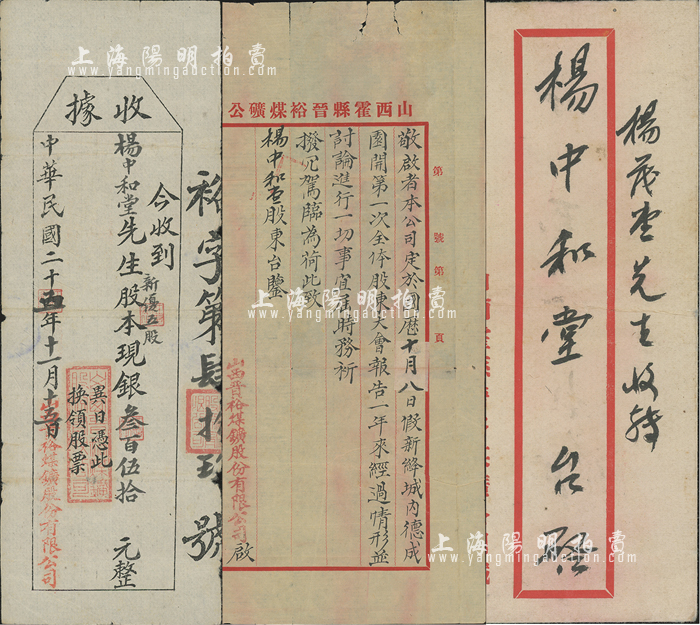 上海陽明拍賣
www.yangmingauction.com
楊茂堂先生收转
楊中和堂台啟
山西霍縣晉裕煤礦公
第 號第 頁
敬啟者本公司定於國歷十月八日假新絳城內德成
園開第一次全体股東大會報告一年來經過情形並
討論進行一切事宜屆時務祈
撥冗駕臨為荷此致
楊中和堂股東台鑒
山西晉裕煤鑛股份有限公司 啟
收據
裕字第肆拾玖號
今收到
楊中和堂先生股本現銀叁百伍拾 元整
新優五股
異日憑此
換領股票
中華民國二十五年十一月十五日
裕煤鑛股份有限公司
上海陽明拍賣
www.yangmingauction.com
上海陽明拍賣
www.yangmingauction.com
上海陽明拍賣
www.yangmingauction.com
上海陽明拍賣
www.yangmingauction.com